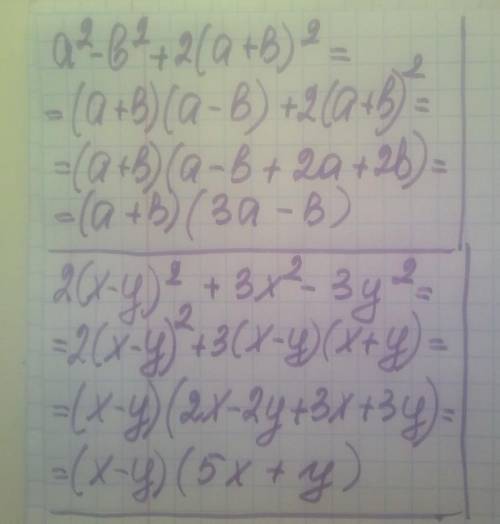 a²-в²+2(a+в)²=
=(a+в)(a-в)+2(a+в)²=
=(a+в)(a-в+2a+2в)=
=(a+в)(3a-в)
2(x-y)²+3x²-3y²=
=2(x-y)²+3(x-y)(x+y)=
=(x-y)(2x-2y+3x+3y)=
=(x-y)(5x+y)